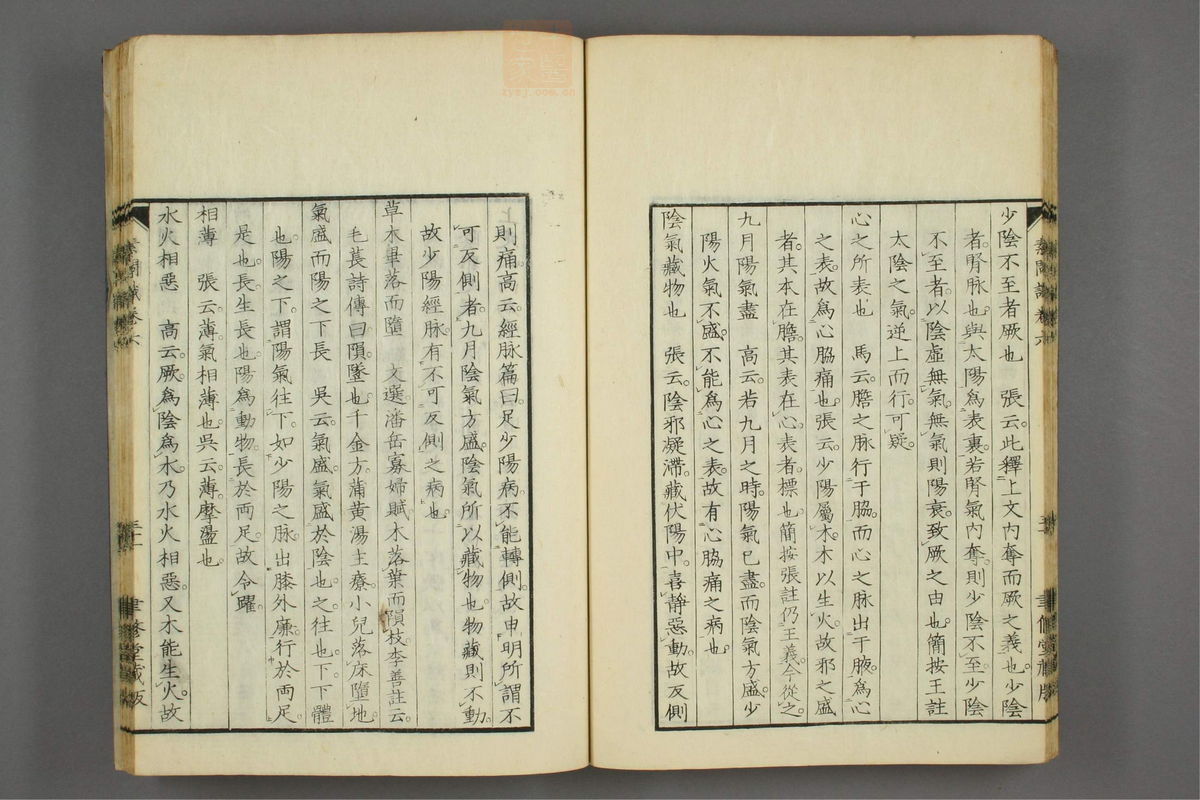 少陰不至者厥也　張云此釋上文內奪而厥之義也。少陰
者。腎脉也。與太陽爲表裏。若腎氣內奪。則少陰不至。少陰
不至者以陰虛無氣。無氣則陽衰致厥之由也。簡按王註
太陰之氣。逆上而行。可疑。
心之所表也　馬云。膽之脉行于脇。而心之脉出于腋。爲心
之表。故爲心脇痛也。張云。少陽屬木。木以生火。故邪之盛
者。其本在膽。其表在心。表者。標也。簡按張註仍王義。今從之
九月陽氣盡　高云。若九月之時。陽氣已盡。而陰氣方盛。少
陽火氣不盛。不能爲心之表。故有心脇痛之病也
陰氣藏物也　張云。陰邪凝滯。藏伏陽中。喜靜惡動。故反側
則痛。高云。經脉篇曰。足少陽病。不能轉側。故申明所謂不
可反側者。九月陰氣方盛。陰氣所以藏物也。物藏則不動。
故少陽經脉。有不可反側之病也。
草木畢落而墮　文選潘岳寡婦賦。木落葉而隕枝。李善註云。
毛萇詩傳曰。隕。墜也。千金方。蒲黃湯主療小兒落床墮地。
氣盛而陽之下長　吳云。氣盛。氣盛於陰也。之。往也。下。下體
也。陽之下。謂陽氣往下。如少陽之脉。出膝外廉。行於兩足。
是也。長。生長也。陽爲動物。長於兩足。故令躍
相薄　張云。薄。氣相薄也。吳云。薄。摩盪也
水火相惡　高云。厥爲陰爲水。乃水火相惡。又木能生火。故